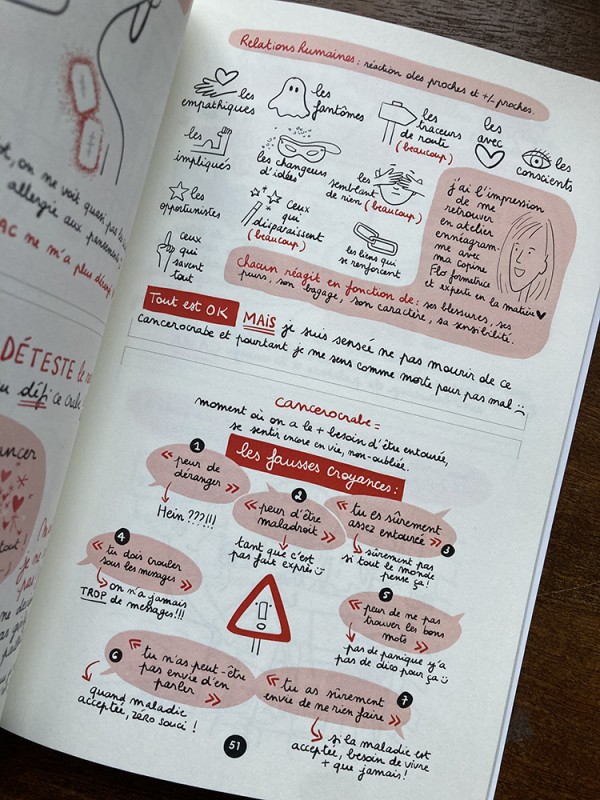 st, on ne voit quasi pas
allergie aux pansements
AC ne m'a plus
DÉTESTE le
défi ce crabe
ancer
tout !
Relations Humaines : réaction des proches et +/- proches.
les empathiques
les fantômes
les traceurs de route (beaucoup)
les avec
les conscients
les impliqués
les changeurs d'idées
les semblant de rien (beaucoup)
les opportunistes
ceux qui disparaissent (beaucoup)
les liens qui se renforcent
ceux qui savent tout
j'ai l'impression
de me
retrouver
en atelier
ennéagram-
me avec
ma copine
Flo formatrice
et experte en la matière
chacun réagit en fonction de : ses blessures, ses
peurs, son bagage, son caractère, sa sensibilité.
Tout est OK MAIS je suis sensée ne pas mourir de ce
cancerocrabe et pourtant je me sens comme morte pour pas mal :(
cancerocrabe =
moment où on a le + besoin d'être entourée,
se sentir encore en vie, non-oubliée.
les fausses croyances :
1
« peur de
déranger »
Hein ???!!!
2
« peur d'être
maladroit »
tant que c'est
pas fait exprès :)
« tu es sûrement
assez entourée »
3
sûrement pas
si tout le monde
pense ça !
4
« tu dois crouler
sous les messages »
on n'a jamais
TROP de messages !!!
5
« peur de ne pas
trouver les bons
mots »
pas de panique y'a
pas de dico pour ça :)
6
« tu n'as peut-être
pas envie d'en
parler »
quand maladie
acceptée, zéro souci !
7
« tu as sûrement
envie de ne rien faire »
si la maladie est
acceptée, besoin de vivre
+ que jamais !
51